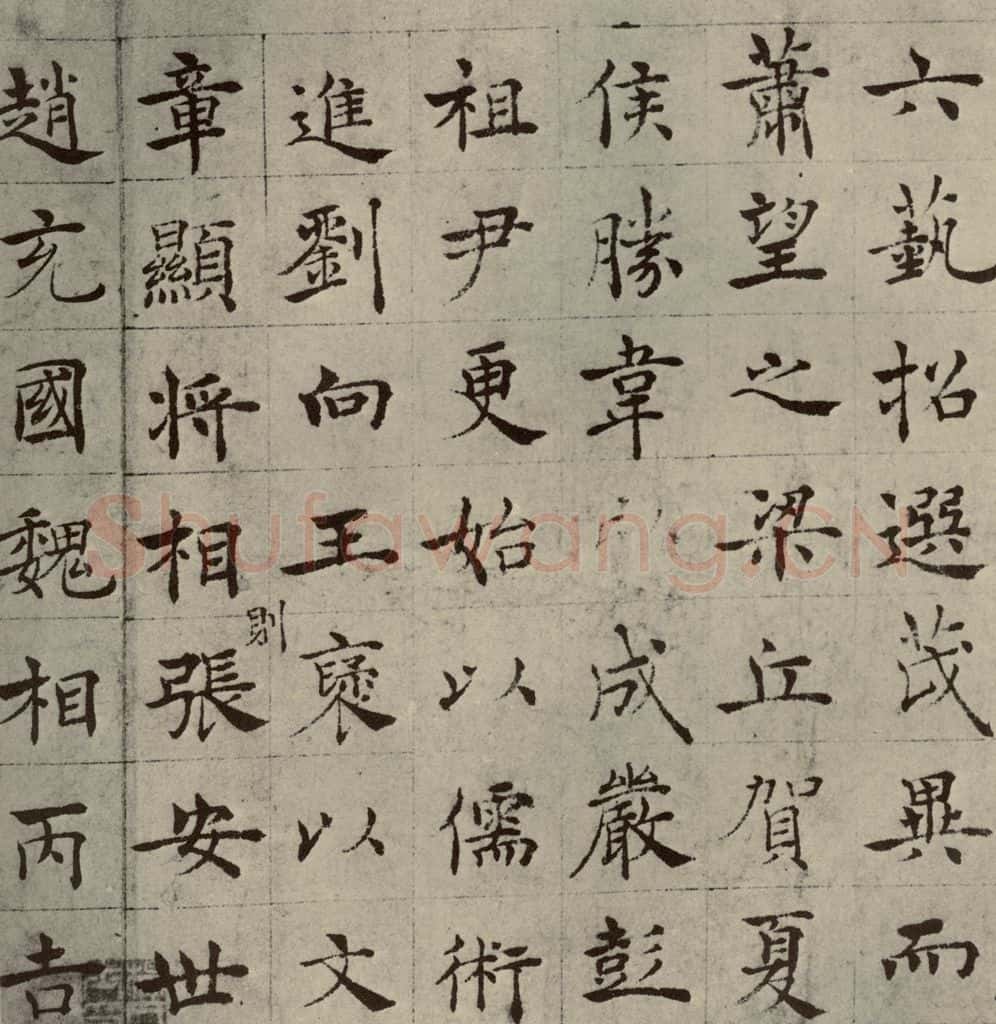 六藝招選茂異而
蕭望之梁丘賀夏
侯勝韋成嚴彭
祖尹更始以儒術
進劉向王褒以文
章顯将相則張安世
趙充國魏相丙吉
Shufawang.CN